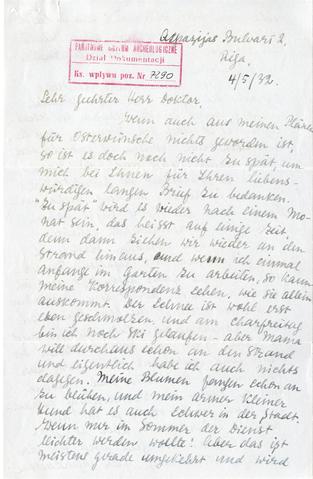 Aspazijas Bulvari 2,
Riga,
4/5/32.
PAŃSTWOWE MUZEUM ARCHEOLOGICZNE
Dział Dokumentacji
Ks. wpływu poz. Nr 7290
Sehr geehrter Herr Doktor,
Wenn auch aus meinen Plänen
für Osterwünsche nichts geworden ist,
so ist es doch noch nicht zu spät, um
mich bei Ihnen für Ihren liebens-
würdigen langen Brief zu bedanken.
"Zu spät" wird es wieder nach einem Mo-
nat sein, das heisst auf einige Zeit,
denn dann ziehen wir wieder an den
Strand hinaus, und wenn ich einmal
anfange im Garten zu arbeiten, so kann
meine Korrespondenz sehen, wie sie allein
auskommt. Der Schnee ist wohl erst
eben geschmolzen, und am Charfreitag
bin ich noch Ski gelaufen - aber Mama
will durchaus schon an den Strand
und eigentlich habe ich auch nichts
dagegen. Meine Blumen fangen schon an
zu blühen, und mein armer kleiner
Hund hat es auch schwer in der Stadt.
Wenn nur im Sommer der Dienst
leichter werden wollte! Aber das ist
meistens gerade umgekehrt und wird